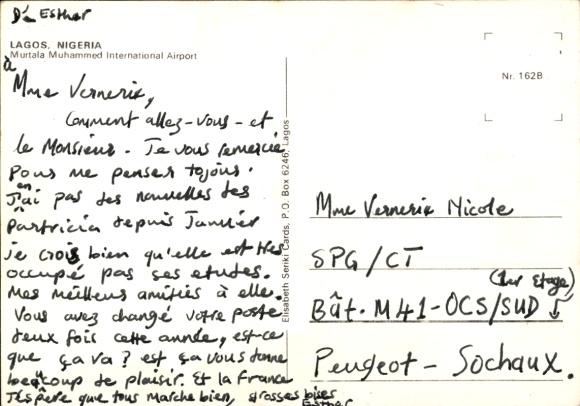 D'Esther
LAGOS, NIGERIA
Murtala Muhammed International Airport
à
Mme Vernerix,
Comment allez-vous - et
le Monsieur. Je vous remercie
Pour me penser tojous.
J'en ai pas des nouvelles des
Partricia depuis Janvier
je crois bien qu'elle est tres
occupé pas ses etudes.
Mes meilleurs amitiés à elle.
Vous avez changé votre poste
deux fois cette année, est-ce
que ça va? est ça vous donne
beaucoup de plaisir. Et la France
J'éspère que tous marche bien, grosses bises
Esther
Elisabeth Seriki Cards, P.O. Box 6246, Lagos
Nr. 162B
Mme Vernerix Nicole
SPG/CT
(1er Etage)
Bât. M41-OCS/SUD
Peugeot - Sochaux.